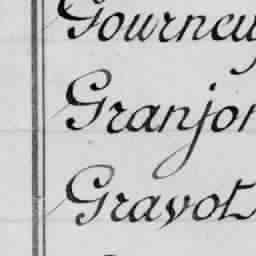 Gourney
Granjon
Gravot